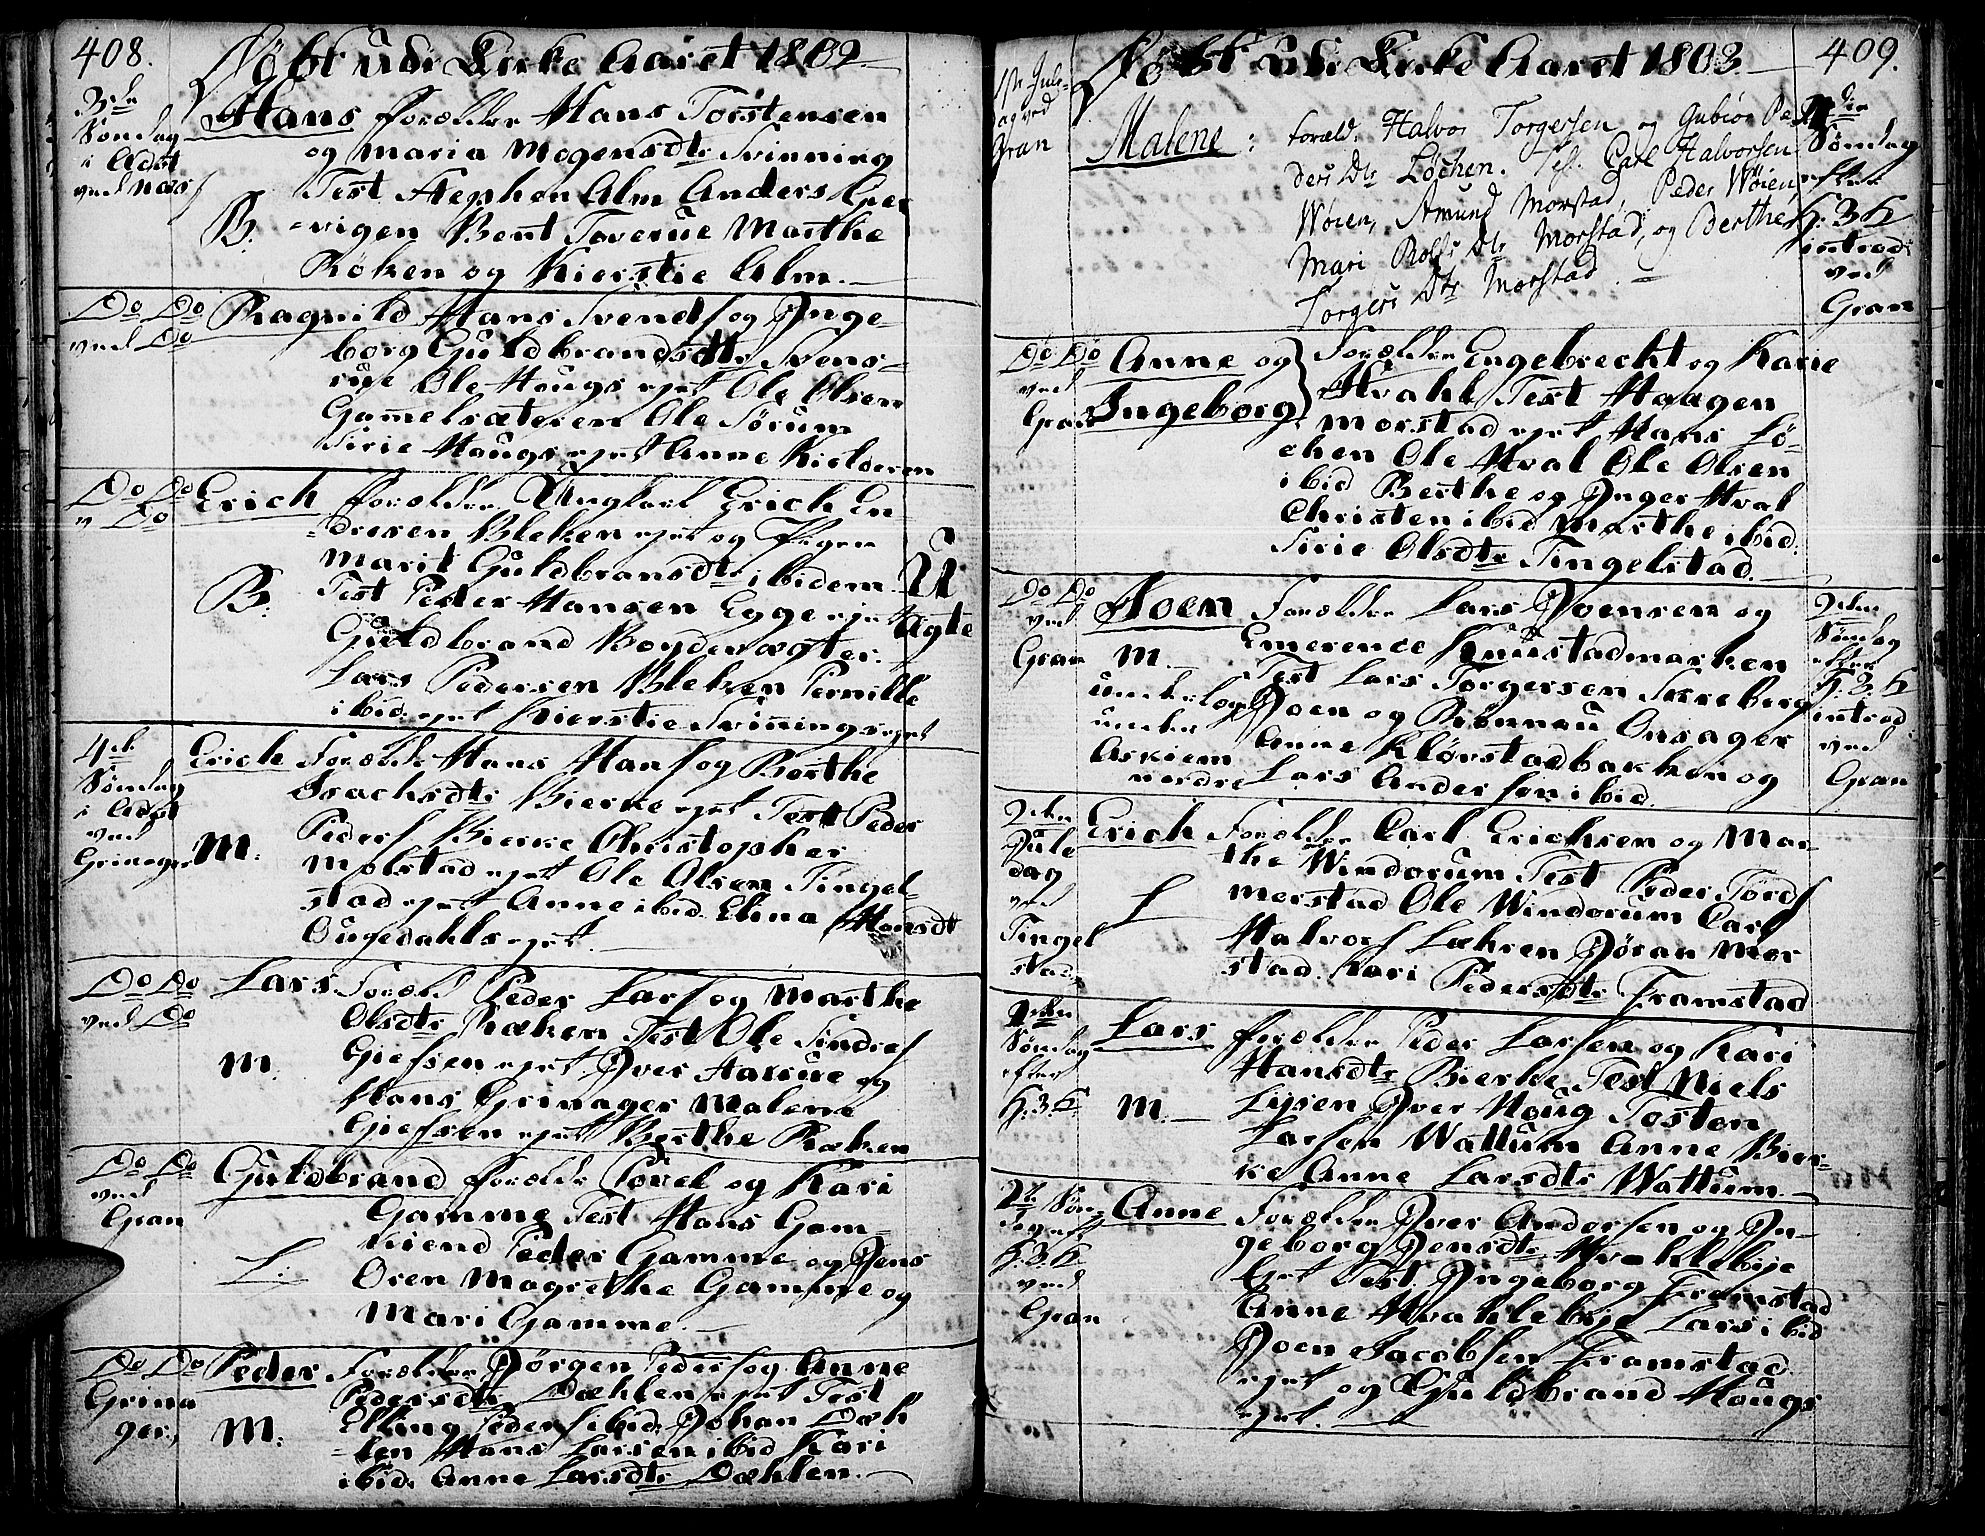 408.
Døbt udi Kirke Aaret 1802
3de
Søndag
i Adst
ved Næs
Hans forældre Hans Torstensen
og Maria Mogensdtr Svinning
Test Stephen Alm Anders
B.
-vigen Bent Toverue Marthe
Røken og Kierstie Alm.
Do Do
ved Do
Ragnild Hans Svends og Inge-
borg Guldbrandsdtr Svens-
rue Ole Hougs ejet Ole Olsen
Gamelsæteren Ole Sørum
Sirie Hougs ejet Anne Kielderen
Do Do
v Do
Erich forældre Ungkarl Erich En
-dresen Bleken ejet og Pigen
Marit Guldbransdtr ibidem
U
ægte
B.
Test Peder Hansen Egge ejet
Guldbrand Bonden
Lars Pedersen Bleken Pernille
ibid ejet Kierstie Svinnings ejet
4de
Søndag
i Adst
ved
Grinager
Erich Forældr Hans Hans og Berthe
Isachsdtr Bierke ejet Test Peder
M.
Peders Bierke Christopher
Molstad ejet Ole Olsen Tingel-
stad ejet Anne ibid. Elina Hansdt
Ougedahls ejet.
Do Do
ved Do
Lars Foræld Peder Lars og Marthe
Olsdtr Ræken Test Ole Sindre
M.
Giefsen ejet Iver Aasrue og
Hans Grinager Malene
Giefsen ejet Berthe Ræken
Do Do
ved
Gran
Guldbrand forældre Povel og Kari
Gamme Test Hans Gam-
L:
kiend Peder Gamme og Jens
Oren Magrethe Gamme og
Mari Gamme.
Do Do
Grina
ger,
Peder Forældre Jørgen Peders og Anne
Pedersdtr Dæhlen ejet Test
M.
Elling Peders ibid. Johan Dæh
-len Hans Larsen ibid Kari
ibid. Anne Larsdtr Dæhlen.
409.
Døbt udi Kirke Aaret 1803
1ste Jule-
dag ved
Gran
Malene: foræld. Halvor Torgersen og Gubiør Pe-
ders Dtr Løchen. Test. Carl Halvorsen
Wøien, Amund Morstad, Peder Wøien,
Mari Rolfs Dtr Morstad, og Berthe
Torgers Dtr Morstad.
2den
Søndag
efter
H. 3 K
introd:
ved
Gran
Do Do
ved
Gran
Anne og
Ingeborg
Forældre Engebrecht og Karie
Hvahl Test Haagen
Morstad ejet Hans Lø-
chen Ole Hval Ole Olsen
ibid Berthe og Inger Hval
Christen ibid Marthe ibid.
Sirie Olsdtr Tingelstad.
Do Do
ved
Gran
Hoen Forældre Lars Joensen og
M.
Emerence Knustadmarken
Test Lars Torgersen Skreberg
Joen og Biønnau Onsager
under
Askiem
nordre
Anne Klørstadbakken og
Lars Andersen ibid
2den
Søndag
efter
H. 3. K
introd
ved
Gran
2den
Jule
dag
ved
Tingel
stad
Erich Forældre Carl Erichsen og Mar-
the Windorum Test Peder Tords
L
merstad Ole Windorum Carl
Halvors Læhren Jøran Mer
stad. Kari Pedersdtr Framstad
2den
Søndag
efter
H. 3 K
Lars forældre Peder Larsen og Kari
Hansdtr Bierke Test Niels
M.
Lysen Iver Houg Tosten
Larsen Wattum Anne Bier-
ke Anne Larsdtr Wattum.
2de Søn-
dag eft
H. 3. K
ved
Gran
Anne Forældre Iver Andersen og In-
geborg Jensdtr Hvahlebye
ejet Test Ingeborg Framstad
Anne Hvahlebye Lars ibid
Joen Jacobsen Framstad
ejet og Guldbrand Hougs
ejet.